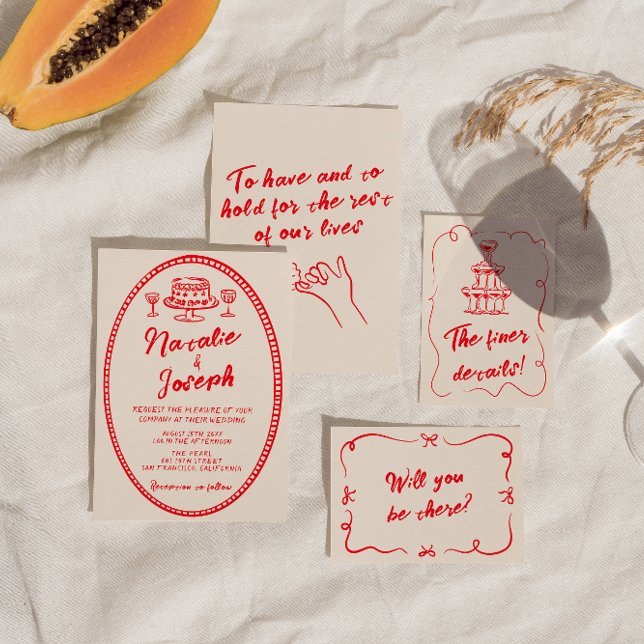 To have and to
hold for the rest
of our lives
Natalie
&
Joseph
REQUEST THE PLEASURE OF YOUR
COMPANY AT THEIR WEDDING
AUGUST 28TH 20XX
1:00 IN THE AFTERNOON
THE PEARL
601 19TH STREET
SAN FRANCISCO, CALIFORNIA
Reception to follow
The finer
details!
Will you
be there?